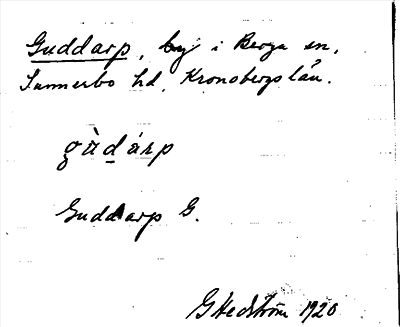 Guddarp, by i Berga sn,
Sunnerbo hd, Kronobergs län.
gàdárp
Guddarp G.
G Hedström 1920